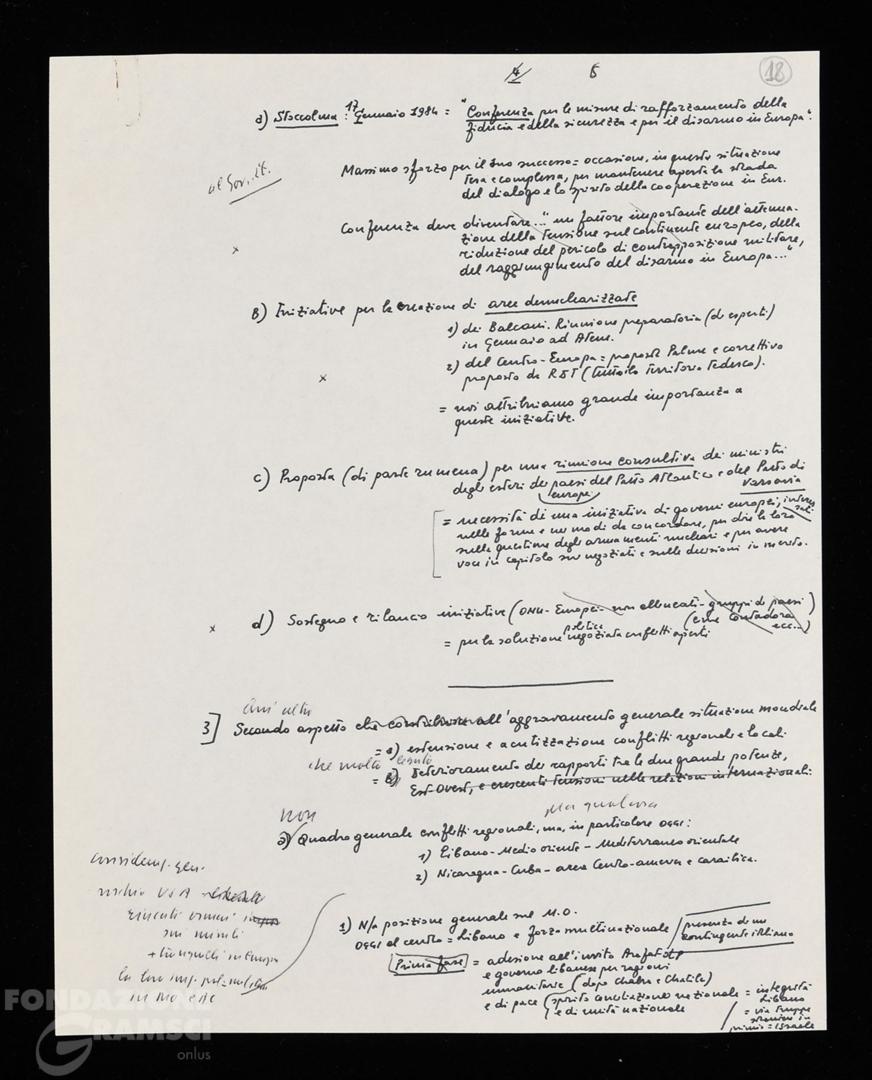 4 5 18
a) Stoccolma : 17 Gennaio 1984 = "Conferenza per le misure di rafforzamento della
fiducia e della sicurezza e per il disarmo in Europa".
al Gov. it.
Massimo sforzo per il suo successo = occasione, in questa situazione
tesa e complessa, per mantenere aperta la strada
del dialogo e lo spirito della cooperazione in Eur.
x
Conferenza deve diventare..." un fattore importante dell'attenua-
zione della tensione sul continente europeo, della
riduzione del pericolo di contrapposizione militare,
del raggiungimento del disarmo in Europa..."
B) Iniziative per la creazione di aree denuclearizzate
1) dei Balcani. Riunione preparatoria (di esperti)
in Gennaio ad Atene.
x
2) del Centro-Europa = proposte Palme e correttivo
proposto da RDT (tutto il Territorio Tedesco).
= noi attribuiamo grande importanza a
queste iniziative.
c) Proposta (di parte rumena) per una riunione consultiva dei ministri
degli esteri dei paesi del Patto Atlantico e del Patto di
europei Varsavia
= necessità di una iniziativa di governi europei, interes
sati
nelle forme e nei modi da concordare, per dire la loro
sulla questione degli armamenti nucleari e per avere
voce in capitolo sui negoziati e sulle decisioni in merito.
x
d) Sostegno e rilancio iniziative (ONU - Europei - non allineati - gruppi di paesi)
(come Contadora
ecc...)
politica
= per la soluzione negoziata conflitti aperti
3] Secondo aspetto che contribuisce all'aggravamento generale situazione mondiale
= a) estensione e acutizzazione conflitti regionali e locali
che molto
= b) Deterioramento dei rapporti tra le due grandi potenze,
Est Ovest, e crescenti tensioni nelle relazioni internazionali.
non
ma qualcosa
a) Quadro generale conflitti regionali, ma, in particolare OGGI:
1) Libano - Medio oriente - Mediterraneo orientale
2) Nicaragua - Cuba - area Centro-americ e caraibica.
gen.
USA
1) N/a posizione generale sul M.O.
OGGI al centro = Libano e forza multinazionale / presenza di un
contingente italiano
Prima fase = adesione all'invito Arafat OLP
e governo libanese per ragioni
umanitarie (dopo Chabra e Chatila)
e di pace (spirito conciliazione nazionale = integrità
Libano
e di unità nazionale = via truppe
straniere in
primis = Israele
FONDAZIONE
GRAMSCI
onlus